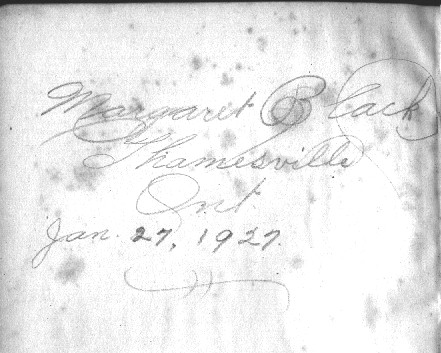 Margaret Black
Thamesville
Ont
Jan. 27, 1927.